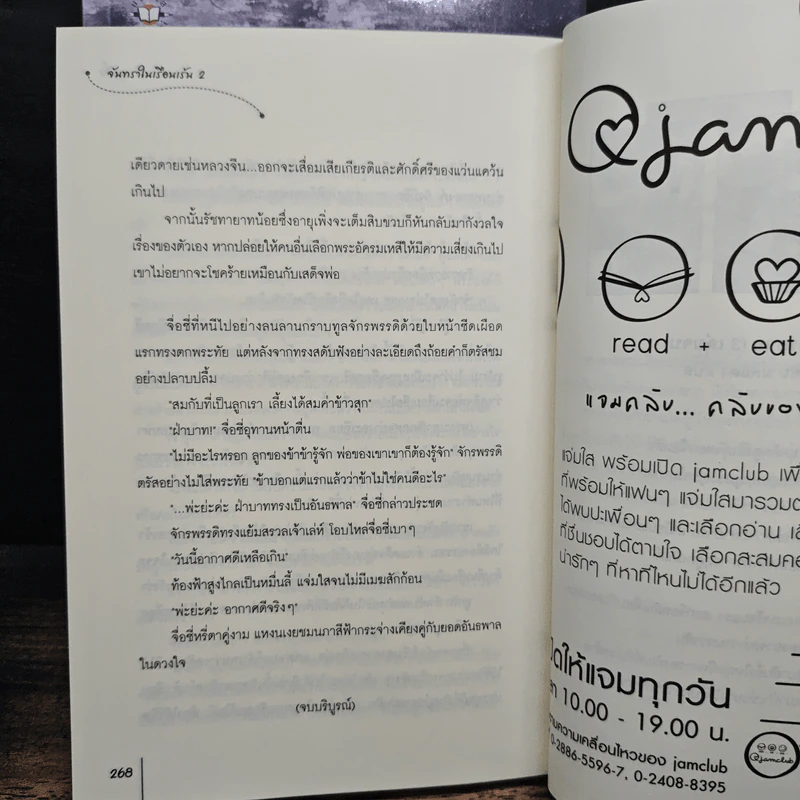 จันทราในเรือนเร้น 2
เดียวดายเช่นหลวงจีน...ออกจะเสื่อมเสียเกียรติและศักดิ์ศรีของแว่นแคว้น
เกินไป
จากนั้นรัชทายาทน้อยซึ่งอายุเพิ่งจะเต็มสิบขวบก็หันกลับมากังวลใจ
เรื่องของตัวเอง หากปล่อยให้คนอื่นเลือกพระอัครมเหสีให้มีความเสี่ยงเกินไป
เขาไม่อยากจะโชคร้ายเหมือนกับเสด็จพ่อ
จื่อซี่ที่หนีไปอย่างลนลานกราบทูลจักรพรรดิด้วยใบหน้าซีดเผือด
แรกทรงตกพระทัย แต่หลังจากทรงสดับฟังอย่างละเอียดถึงถ้อยคำก็ตรัสชม
อย่างปลาบปลื้ม
"สมกับที่เป็นลูกเรา เลี้ยงได้สมค่าข้าวสุก"
"ฝ่าบาท!" จื่อซี่อุทานหน้าตื่น
"ไม่มีอะไรหรอก ลูกของข้าข้ารู้จัก พ่อของเขาเขาก็ต้องรู้จัก" จักรพรรดิ
ตรัสอย่างไม่ใส่พระทัย "ข้าบอกแต่แรกแล้วว่าข้าไม่ใช่คนดีอะไร"
"...พ่ะย่ะค่ะ ฝ่าบาททรงเป็นอันธพาล" จื่อซี่กล่าวประชด
จักรพรรดิทรงแย้มสรวลเจ้าเล่ห์ โอบไหล่จื่อซี่เบาๆ
"วันนี้อากาศดีเหลือเกิน"
ท้องฟ้าสูงไกลเป็นหมื่นลี้ แจ่มใสจนไม่มีเมฆสักก้อน
"พ่ะย่ะค่ะ อากาศดีจริงๆ"
จื่อซี่หรี่ตาคู่งาม แหงนเงยชมนภาสีฟ้ากระจ่างเคียงคู่กับยอดอันธพาล
ในดวงใจ
(จบบริบูรณ์)
268
@jam
read + eat
แจมคลับ... คลับของ
แจ่มใส พร้อมเปิด jamclub เพื่
ที่พร้อมให้แฟนๆ แจ่มใสมารวมต
ได้พบปะเพื่อนๆ และเลือกอ่าน เลื
ที่ชื่นชอบได้ตามใจ เลือกสะสมคอ
น่ารักๆ ที่หาที่ไหนไม่ได้อีกแล้ว
ให้แจมทุกวัน
10.00 - 19.00 น.
ความเคลื่อนไหวของ jamclub
0-2886-5596-7, 0-2408-8395
@jamclub